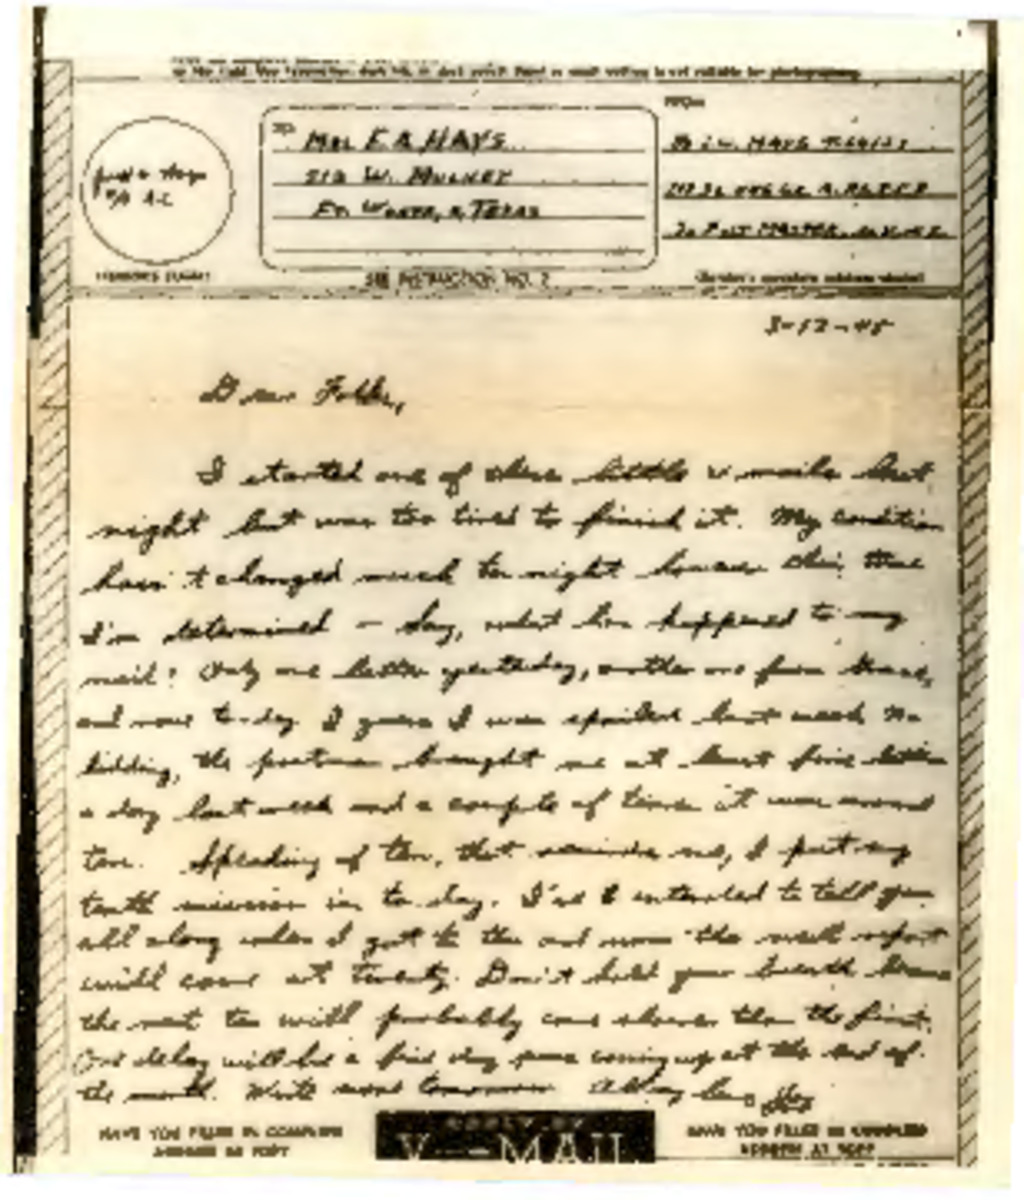 TO:
FROM
MRS E. A. HAYS
W. MULKEY
FT. WORTH, 4, TEXAS
POST MASTER, N.Y. N.Y.
SEE INSTRUCTION NO. 2
(Sender's complete address above)
3-12-45
Dear Folks,
I started one of these little v-mails last
night but was too tired to finish it. My condition
hasn't changed much to night however this time
I'm determined - Say, what has happened to my
mail? Only one letter yesterday, another one from
and none to day I guess I was spoiled last week No
kidding, the postman brought me at least five letters
a day last week and a couple of times it was around
ten. Speaking of ten, that reminds me, I put my
tenth mission in to day. I've intended to tell you
all along when I got to ten and now the next report
will come at twenty. Don't hold your breath
the next ten will probably come slower than the first.
One delay will be a five day coming up at the end of
the month. Write more tomorrow All my love
HAVE YOU FILLED IN COMPLETE
ADDRESS AT TOP?
REPLY BY
V---MAIL
HAVE YOU FILLED IN COMPLETE
ADDRESS AT TOP?